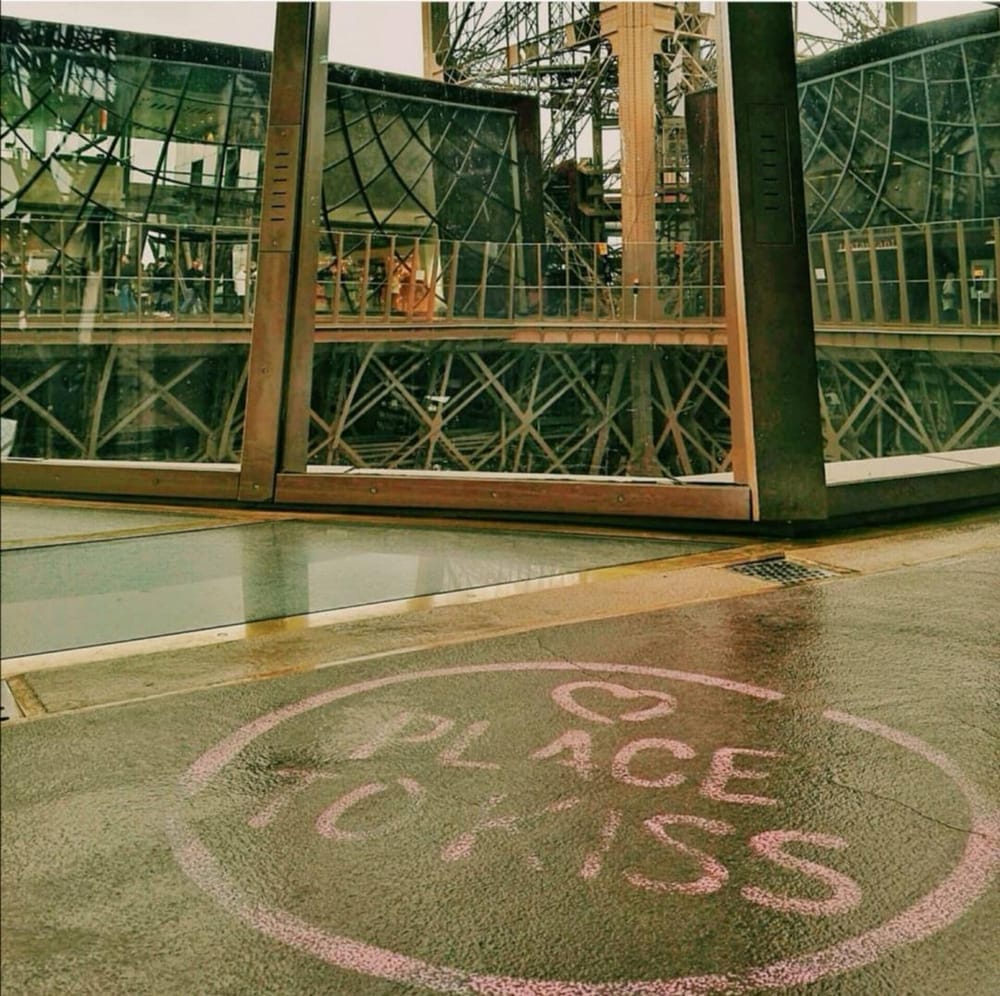 PLACE
TO KISS